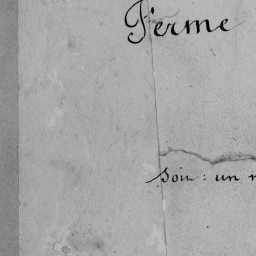 Ferme
Soin : un